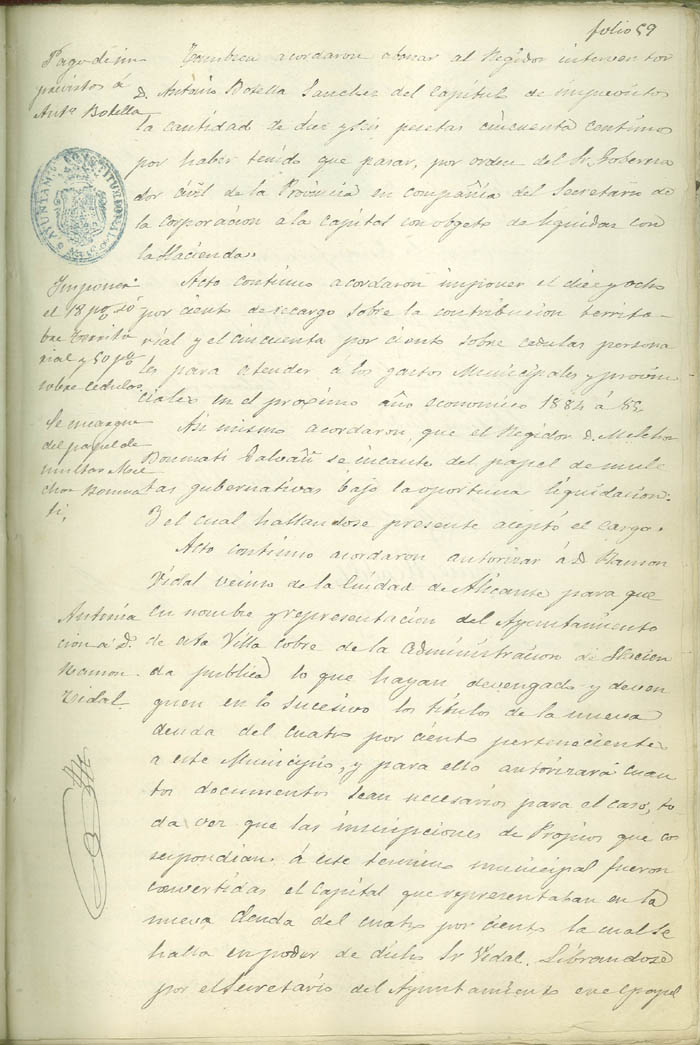 folio 59
Pago de im
previstos á
Antº Botella
Tambien acordaron abonar al Regidor interventor
D. Antonio Botella Sanchez del Capitulo de imprevistos
la cantidad de diez y seis pesetas cincuenta centimos
por haber tenido que pasar, por orden del Sr. Goberna
dor civil de la Provincia en compañia del Secretario de
la Corporacion a la Capital con objeto de liquidar con
la Hacienda.
AYUNTAMTO CONSTITUCIONAL
Imponer
el 18 p% so
bre territo
rial y 50 p%
sobre cedulas
Acto continuo acordaron imponer el diez y ocho
por ciento de recargo sobre la contribucion territo-
rial y el cincuenta por ciento sobre cedulas persona
les para atender á los gastos Municipales y provin
ciales en el proximo año economico 1884 á 85.
Se encargue
del papel de
multas Mel
chor Bonma
ti,
Asi mismo acordaron que el Regidor D. Melchor
Bonmati Galvañ se incaute del papel de mul
tas gubernativas bajo la oportuna liquidacion.
Y el cual hallandose presente aceptó el cargo.
Autoriza
cion á D.
Ramon
Vidal.
Acto continuo acordaron autorizar á D. Ramon
Vidal vecino de la Ciudad de Alicante para que
en nombre y representacion del Ayuntamiento
de esta Villa cobre de la Administracion de Hacien
da publica lo que hayan devengado y deven
guen en lo sucesivo los títulos de la nueva
deuda del cuatro por ciento perteneciente
a este Municipio, y para ello autorizará cuan
tos documentos sean necesarios para el caso, to
da vez que las inscripciones de Propios que co
rrespondian á este termino municipal fueron
convertidas el Capital que representaban en la
nueva deuda del cuatro por ciento la cual se
halla en poder de dicho Sr Vidal. Librandose
por el Secretario del Ayuntamiento en el papel